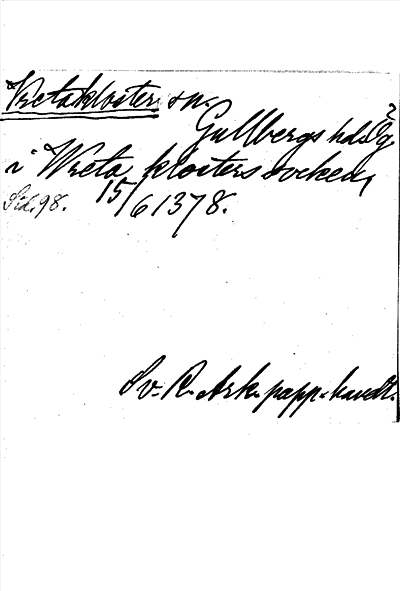 Vretakloster sn.
Gullbergs hd Ög.
i Wreta klosters socken,
Sid. 98. 15/6 1378.
Sv. R. Ark. papp. handl.